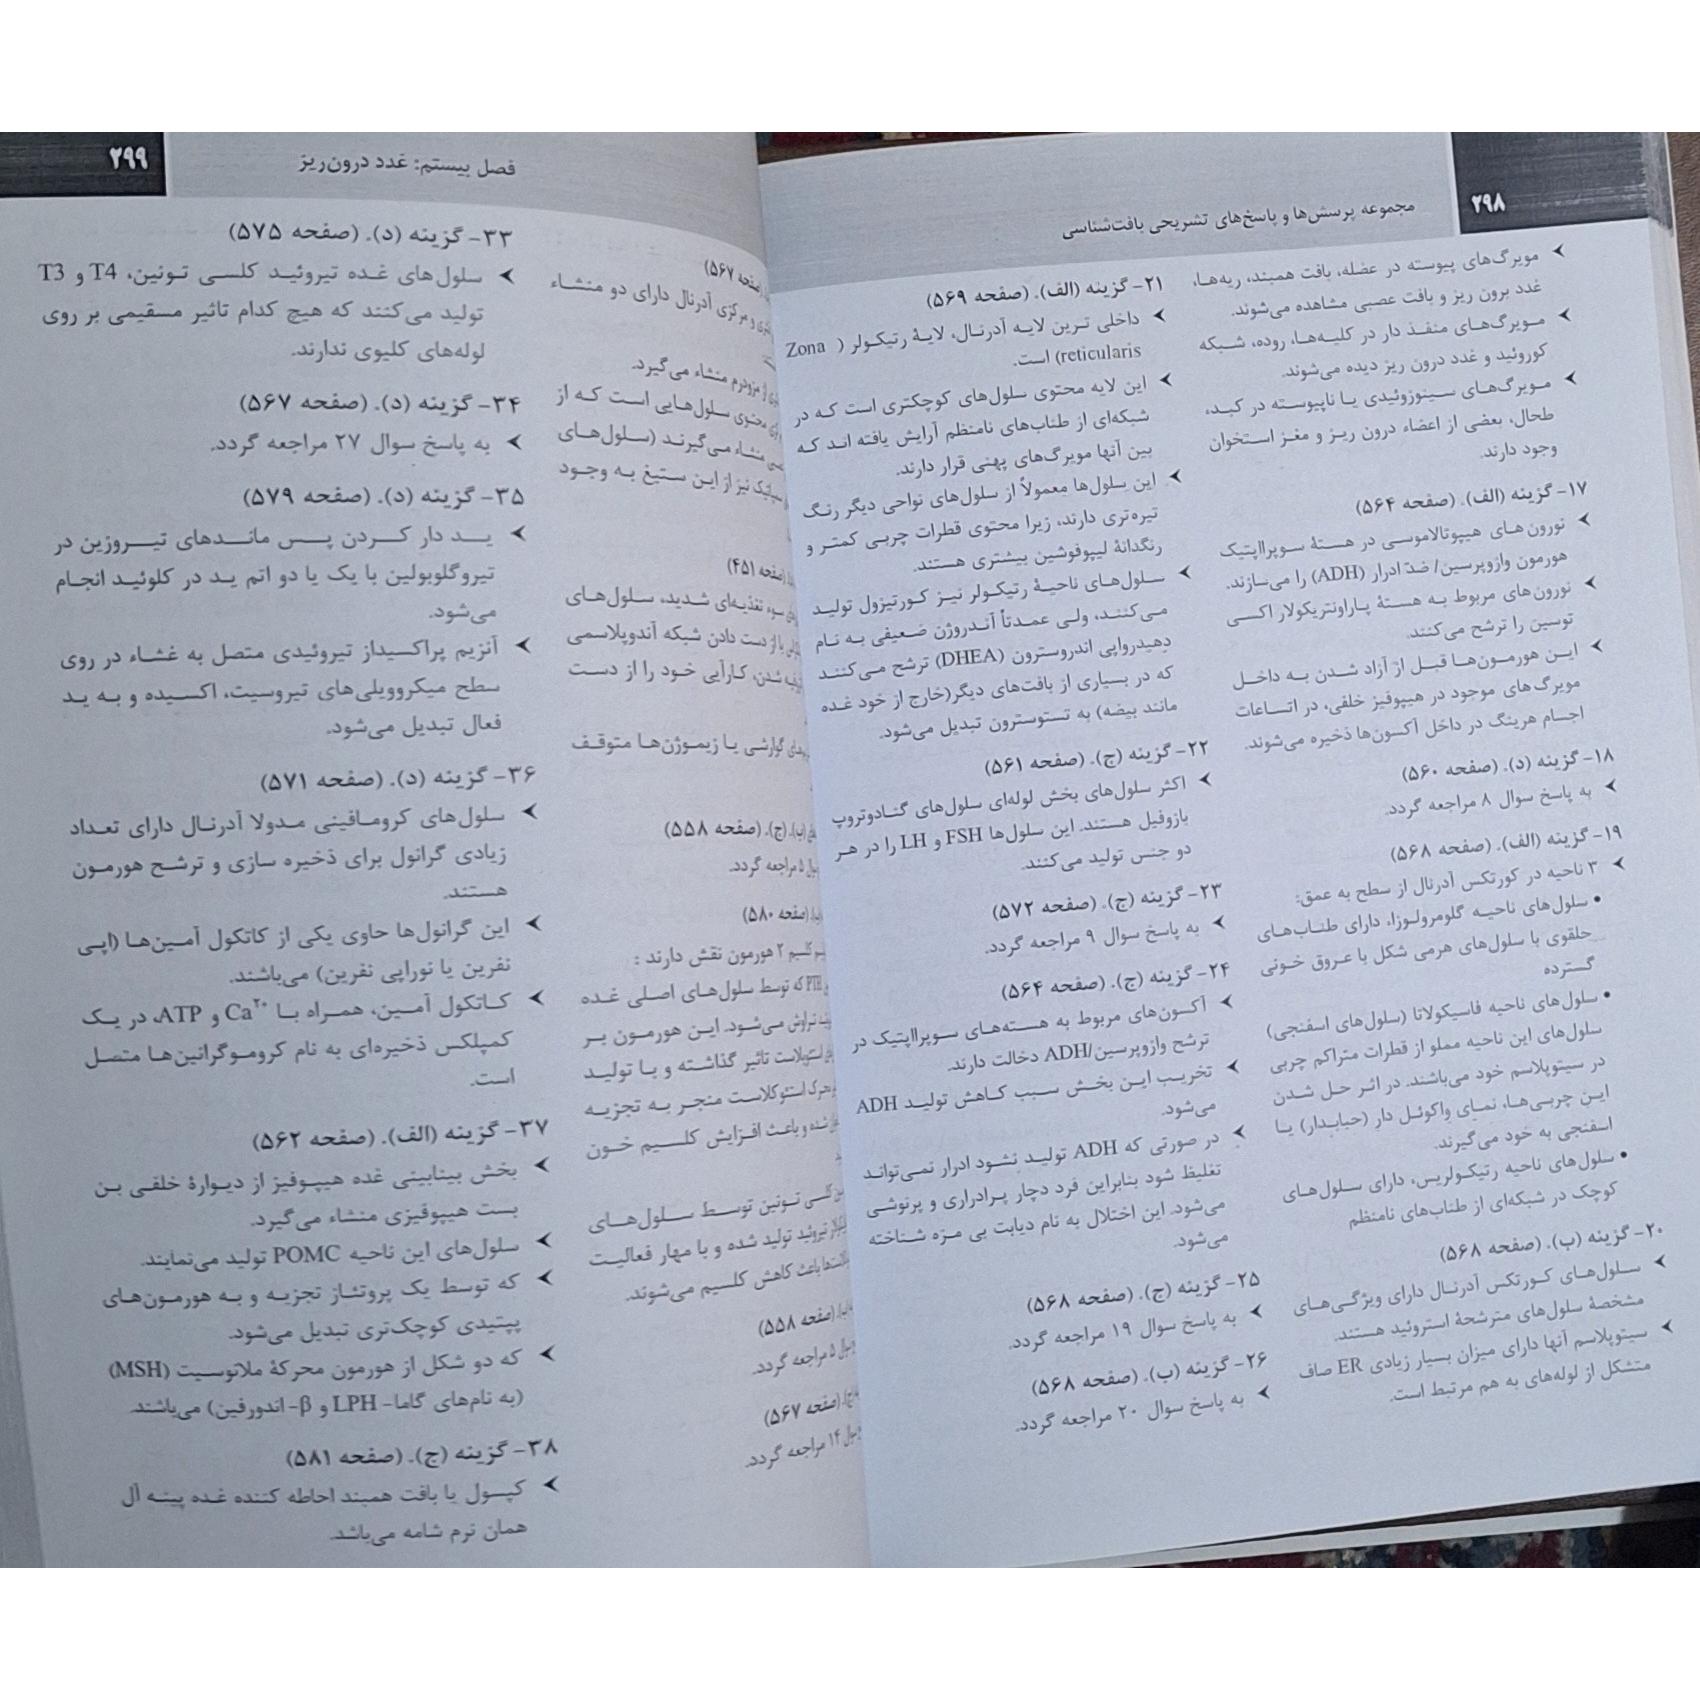 ۲۹۸
مجموعه پرسش‌ها و پاسخ‌های تشریحی بافت‌شناسی
مویرگ‌های پیوسته در عضله، بافت همبند، ریه‌ها،
غدد برون ریز و بافت عصبی مشاهده می‌شوند.
مویرگ‌های منفذ دار در کلیه‌ها، روده، شبکه
کوروئید و غدد درون ریز دیده می‌شوند.
مویرگ‌های سینوزوئیدی یا ناپیوسته در کبد،
طحال، بعضی از اعضاء درون ریز و مغز استخوان
وجود دارند.
۱۷- گزینه (الف). (صفحه ۵۶۴)
نورون‌های هیپوتالاموسی در هستهٔ سوپرااپتیک
هورمون وازوپرسین/ ضدّ ادرار (ADH) را می‌سازند.
نورون‌های مربوط به هستهٔ پاراونتریکولار اکسی
توسین را ترشح می‌کنند.
این هورمون‌ها قبل از آزاد شدن به داخل
مویرگ‌های موجود در هیپوفیز خلفی، در اتساعات
اجسام هرینگ در داخل آکسون‌ها ذخیره می‌شوند.
۱۸- گزینه (د). (صفحه ۵۶۰)
به پاسخ سوال ۸ مراجعه گردد.
۱۹- گزینه (الف). (صفحه ۵۶۸)
۳ ناحیه در کورتکس آدرنال از سطح به عمق:
• سلول‌های ناحیه گلومرولوزا، دارای طناب‌های
حلقوی با سلول‌های هرمی شکل با عروق خونی
گسترده
• سلول‌های ناحیه فاسیکولاتا (سلول‌های اسفنجی)
سلول‌های این ناحیه مملو از قطرات متراکم چربی
در سیتوپلاسم خود می‌باشند. در اثر حل شدن
این چربی‌ها، نمای واکوئل دار (حبابدار) یا
اسفنجی به خود می‌گیرند.
• سلول‌های ناحیه رتیکولریس، دارای سلول‌های
کوچک در شبکه‌ای از طناب‌های نامنظم
۲۰- گزینه (ب). (صفحه ۵۶۸)
سلول‌های کورتکس آدرنال دارای ویژگی‌های
مشخصهٔ سلول‌های مترشحهٔ استروئید هستند.
سیتوپلاسم آنها دارای میزان بسیار زیادی ER صاف
متشکل از لوله‌های به هم مرتبط است.
۲۱- گزینه (الف). (صفحه ۵۶۹)
داخلی ترین لایه آدرنال، لایهٔ رتیکولر (Zona
reticularis) است.
این لایه محتوی سلول‌های کوچکتری است که در
شبکه‌ای از طناب‌های نامنظم آرایش یافته اند که
بین آنها مویرگ‌های پهنی قرار دارند.
این سلول‌ها معمولاً از سلول‌های نواحی دیگر رنگ
تیره‌تری دارند، زیرا محتوی قطرات چربی کمتر و
رنگدانهٔ لیپوفوشین بیشتری هستند.
سلول‌های ناحیهٔ رتیکولر نیز کورتیزول تولید
می‌کنند، ولی عمدتاً آندروژن ضعیفی به نام
دهیدرواپی اندروسترون (DHEA) ترشح می‌کنند
که در بسیاری از بافت‌های دیگر(خارج از خود غده
مانند بیضه) به تستوسترون تبدیل می‌شود.
۲۲- گزینه (ج). (صفحه ۵۶۱)
اکثر سلول‌های بخش لوله‌ای سلول‌های گنادوتروپ
بازوفیل هستند. این سلول‌ها FSH و LH را در هر
دو جنس تولید می‌کنند.
۲۳- گزینه (ج). (صفحه ۵۷۲)
به پاسخ سوال ۹ مراجعه گردد.
۲۴- گزینه (ج). (صفحه ۵۶۴)
آکسون‌های مربوط به هسته‌های سوپرااپتیک در
ترشح وازوپرسین/ADH دخالت دارند.
تخریب این بخش سبب کاهش تولید ADH
می‌شود.
در صورتی که ADH تولید نشود ادرار نمی‌تواند
تغلیظ شود بنابراین فرد دچار پرادراری و پرنوشی
می‌شود. این اختلال به نام دیابت بی مزه شناخته
می‌شود.
۲۵- گزینه (ج). (صفحه ۵۶۸)
به پاسخ سوال ۱۹ مراجعه گردد.
۲۶- گزینه (ب). (صفحه ۵۶۸)
به پاسخ سوال ۲۰ مراجعه گردد.
فصل بیستم: غدد درون‌ریز
۲۹۹
(صفحه ۵۶۷)
و مرکزی آدرنال دارای دو منشاء
از مزودرم منشاء می‌گیرد.
محتوی سلول‌هایی است که از
منشاء می‌گیرند (سلول‌های
نیز از این ستیغ به وجود
(صفحه ۴۵۱)
سوء تغذیه‌ای شدید، سلول‌های
با از دست دادن شبکه آندوپلاسمی
شدن، کارآیی خود را از دست
گوارشی یا زیموژن‌ها متوقف
(ب). (ج). (صفحه ۵۵۸)
۵ مراجعه گردد.
(صفحه ۵۸۰)
کلسیم ۲ هورمون نقش دارند :
PTH که توسط سلول‌های اصلی غده
تراوش می‌شود. این هورمون بر
استئوبلاست تاثیر گذاشته و با تولید
محرک استئوکلاست منجر به تجزیه
شده و باعث افزایش کلسیم خون
کلسی تونین توسط سلول‌های
تیروئید تولید شده و با مهار فعالیت
باعث کاهش کلسیم می‌شوند.
(صفحه ۵۵۸)
سوال ۵ مراجعه گردد.
(صفحه ۵۶۷)
سوال ۱۴ مراجعه گردد.
۳۳- گزینه (د). (صفحه ۵۷۵)
سلول‌های غده تیروئید کلسی تونین، T4 و T3
تولید می‌کنند که هیچ کدام تاثیر مسقیمی بر روی
لوله‌های کلیوی ندارند.
۳۴- گزینه (د). (صفحه ۵۶۷)
به پاسخ سوال ۲۷ مراجعه گردد.
۳۵- گزینه (د). (صفحه ۵۷۹)
ید دار کردن پس ماندهای تیروزین در
تیروگلوبولین با یک یا دو اتم ید در کلوئید انجام
می‌شود.
آنزیم پراکسیداز تیروئیدی متصل به غشاء در روی
سطح میکروویلی‌های تیروسیت، اکسیده و به ید
فعال تبدیل می‌شود.
۳۶- گزینه (د). (صفحه ۵۷۱)
سلول‌های کرومافینی مدولا آدرنال دارای تعداد
زیادی گرانول برای ذخیره سازی و ترشح هورمون
هستند.
این گرانول‌ها حاوی یکی از کاتکول آمین‌ها (اپی
نفرین یا نوراپی نفرین) می‌باشند.
کاتکول آمین، همراه با Ca²⁺ و ATP، در یک
کمپلکس ذخیره‌ای به نام کروموگرانین‌ها متصل
است.
۳۷- گزینه (الف). (صفحه ۵۶۲)
بخش بینابینی غده هیپوفیز از دیوارهٔ خلفی بن
بست هیپوفیزی منشاء می‌گیرد.
سلول‌های این ناحیه POMC تولید می‌نمایند.
که توسط یک پروتئاز تجزیه و به هورمون‌های
پپتیدی کوچک‌تری تبدیل می‌شود.
که دو شکل از هورمون محرکهٔ ملانوسیت (MSH)
(به نام‌های گاما- LPH و β- اندورفین) می‌باشند.
۳۸- گزینه (ج). (صفحه ۵۸۱)
کپسول یا بافت همبند احاطه کننده غده پینه آل
همان نرم شامه می‌باشد.